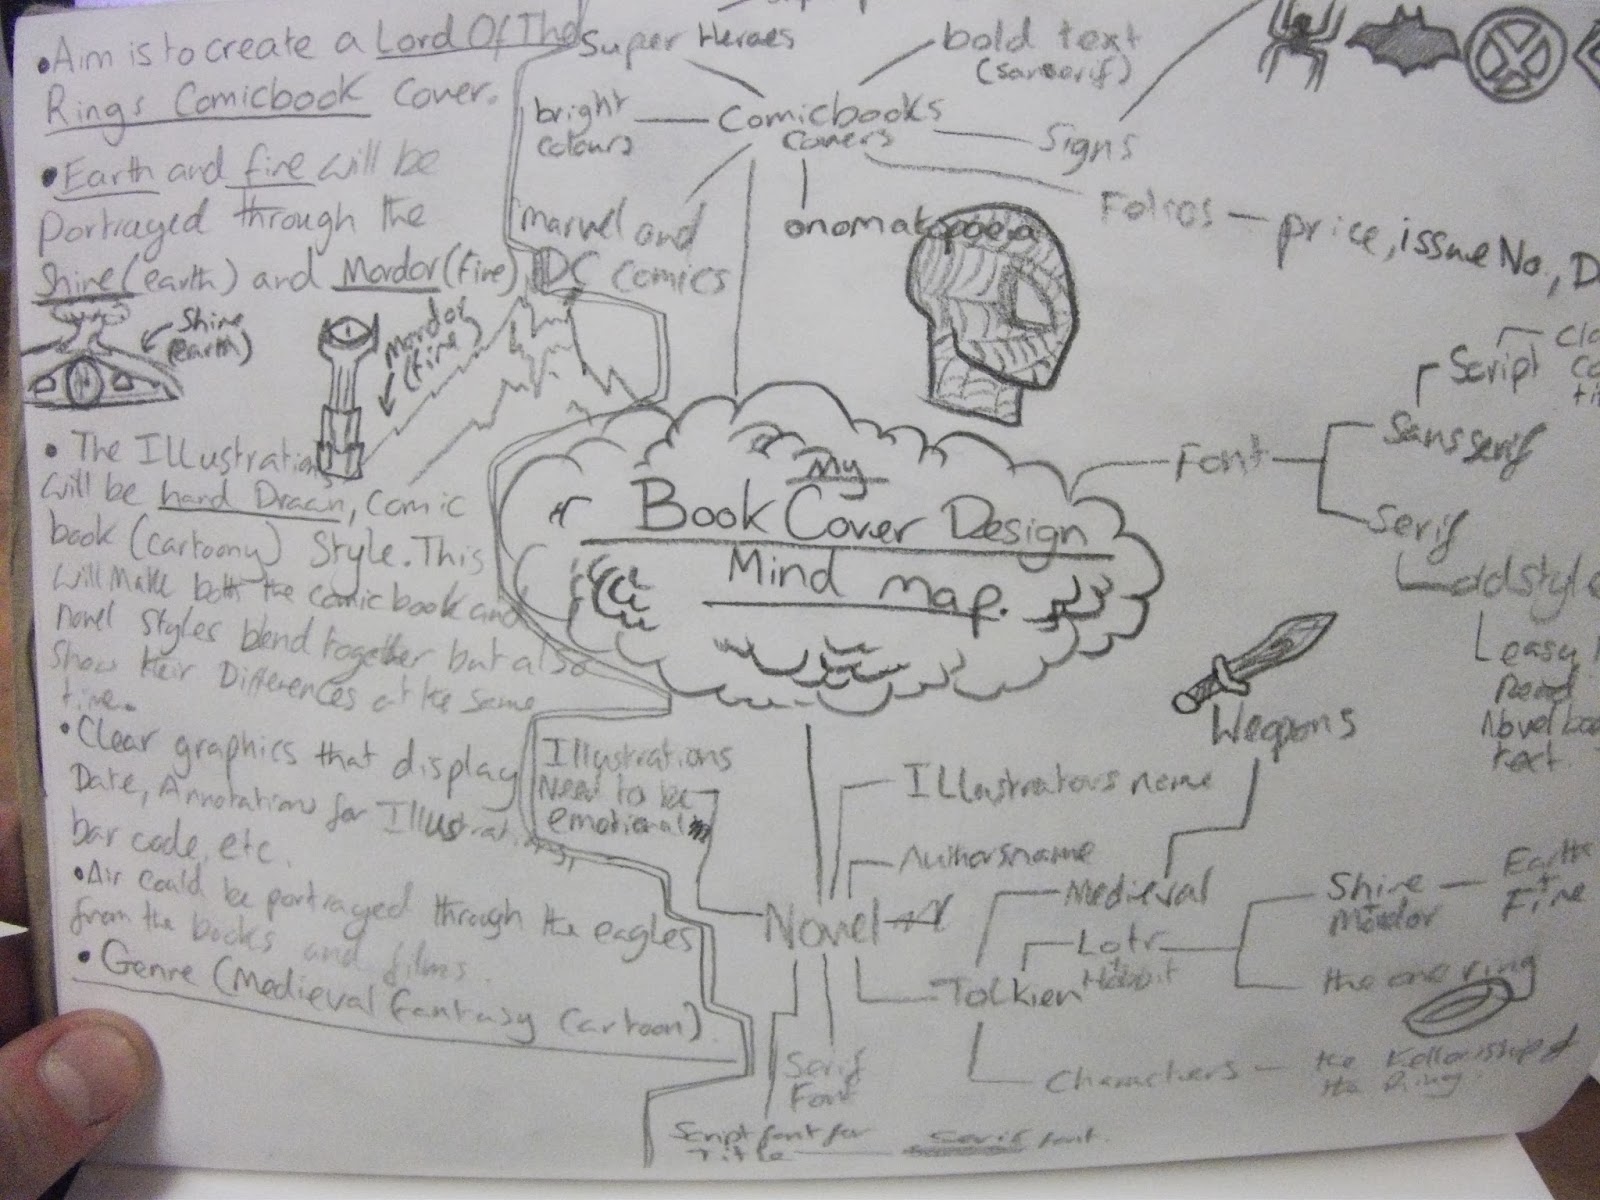 • Aim is to create a Lord Of The
Rings Comicbook cover.
• Earth and fire will be
portrayed through the
Shire (earth) and Mordor (fire)
Shire
(earth)
Mordor
(fire)
• The Illustration
will be hand Drawn, comic
book (cartoony) Style. This
will make both the comic book and
novel styles blend together but also
show their Differences at the same
time.
• Clear graphics that display
Date, Annotations for Illustrations,
bar code, etc.
• Air could be portrayed through the eagles
from the books and films.
• Genre (Medieval fantasy cartoon).
Super Heroes
bold text
(sanserif)
bright
colours
Comicbooks
covers
Signs
marvel and
DC comics
onomatopoeia
Folios - price, issue No.,
My
Book Cover Design
Mind map.
Font
Script
Sans serif
Serif
old style
easy
Read
Novel
text.
Weapons
Illustrations
Need to be
emotional
Illustrators name
Authors name
Novel
Medieval
Lotr
+
Hobbit
Tolkien
Shire
+
Mordor
Earth
+
Fire
the one ring
Characters - the Fellowship of
the Ring.
Serif
Font
Script font for
Title
Serif font.